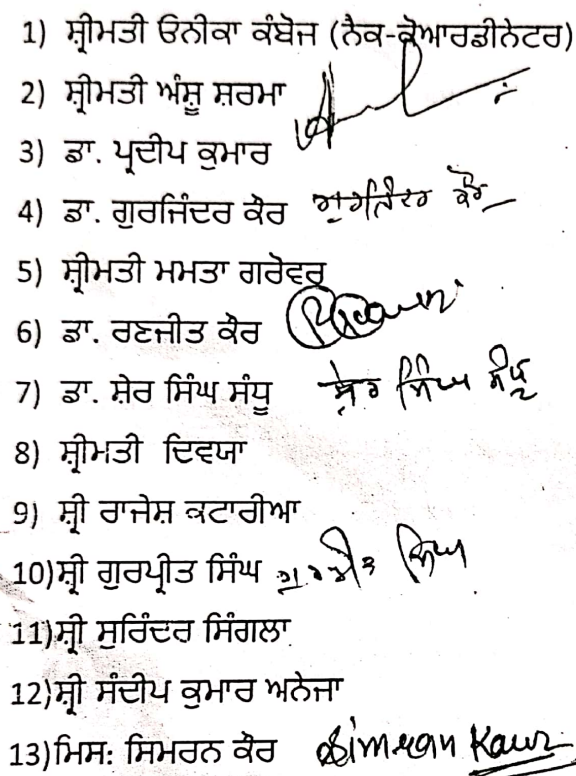 1) ਸ਼੍ਰੀਮਤੀ ਓਨੀਕਾ ਕੰਬੋਜ (ਨੈਕ-ਕੋਆਰਡੀਨੇਟਰ)
2) ਸ਼੍ਰੀਮਤੀ ਅੰਸ਼ੂ ਸ਼ਰਮਾ
3) ਡਾ. ਪ੍ਰਦੀਪ ਕੁਮਾਰ
4) ਡਾ. ਗੁਰਜਿੰਦਰ ਕੌਰ ਗੁਰਜਿੰਦਰ ਕੌਰ
5) ਸ਼੍ਰੀਮਤੀ ਮਮਤਾ ਗਰੋਵਰ
6) ਡਾ. ਰਣਜੀਤ ਕੌਰ
7) ਡਾ. ਸ਼ੇਰ ਸਿੰਘ ਸੰਧੂ ਸ਼ੇਰ ਸਿੰਘ ਸੰਧੂ
8) ਸ਼੍ਰੀਮਤੀ ਦਿਵਯਾ
9) ਸ਼੍ਰੀ ਰਾਜੇਸ਼ ਕਟਾਰੀਆ
10)ਸ਼੍ਰੀ ਗੁਰਪ੍ਰੀਤ ਸਿੰਘ ਗੁਰਪ੍ਰੀਤ ਸਿੰਘ
11)ਸ਼੍ਰੀ ਸੁਰਿੰਦਰ ਸਿੰਗਲਾ
12)ਸ਼੍ਰੀ ਸੰਦੀਪ ਕੁਮਾਰ ਅਨੇਜਾ
13)ਮਿਸ: ਸਿਮਰਨ ਕੌਰ Simran Kaur